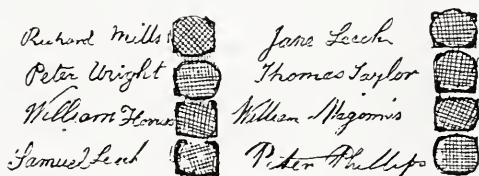 Richard Mills
Peter Wright
William
Samuel Leech
Jane Leech
Thomas Taylor
William Magornis
Peter Phillips